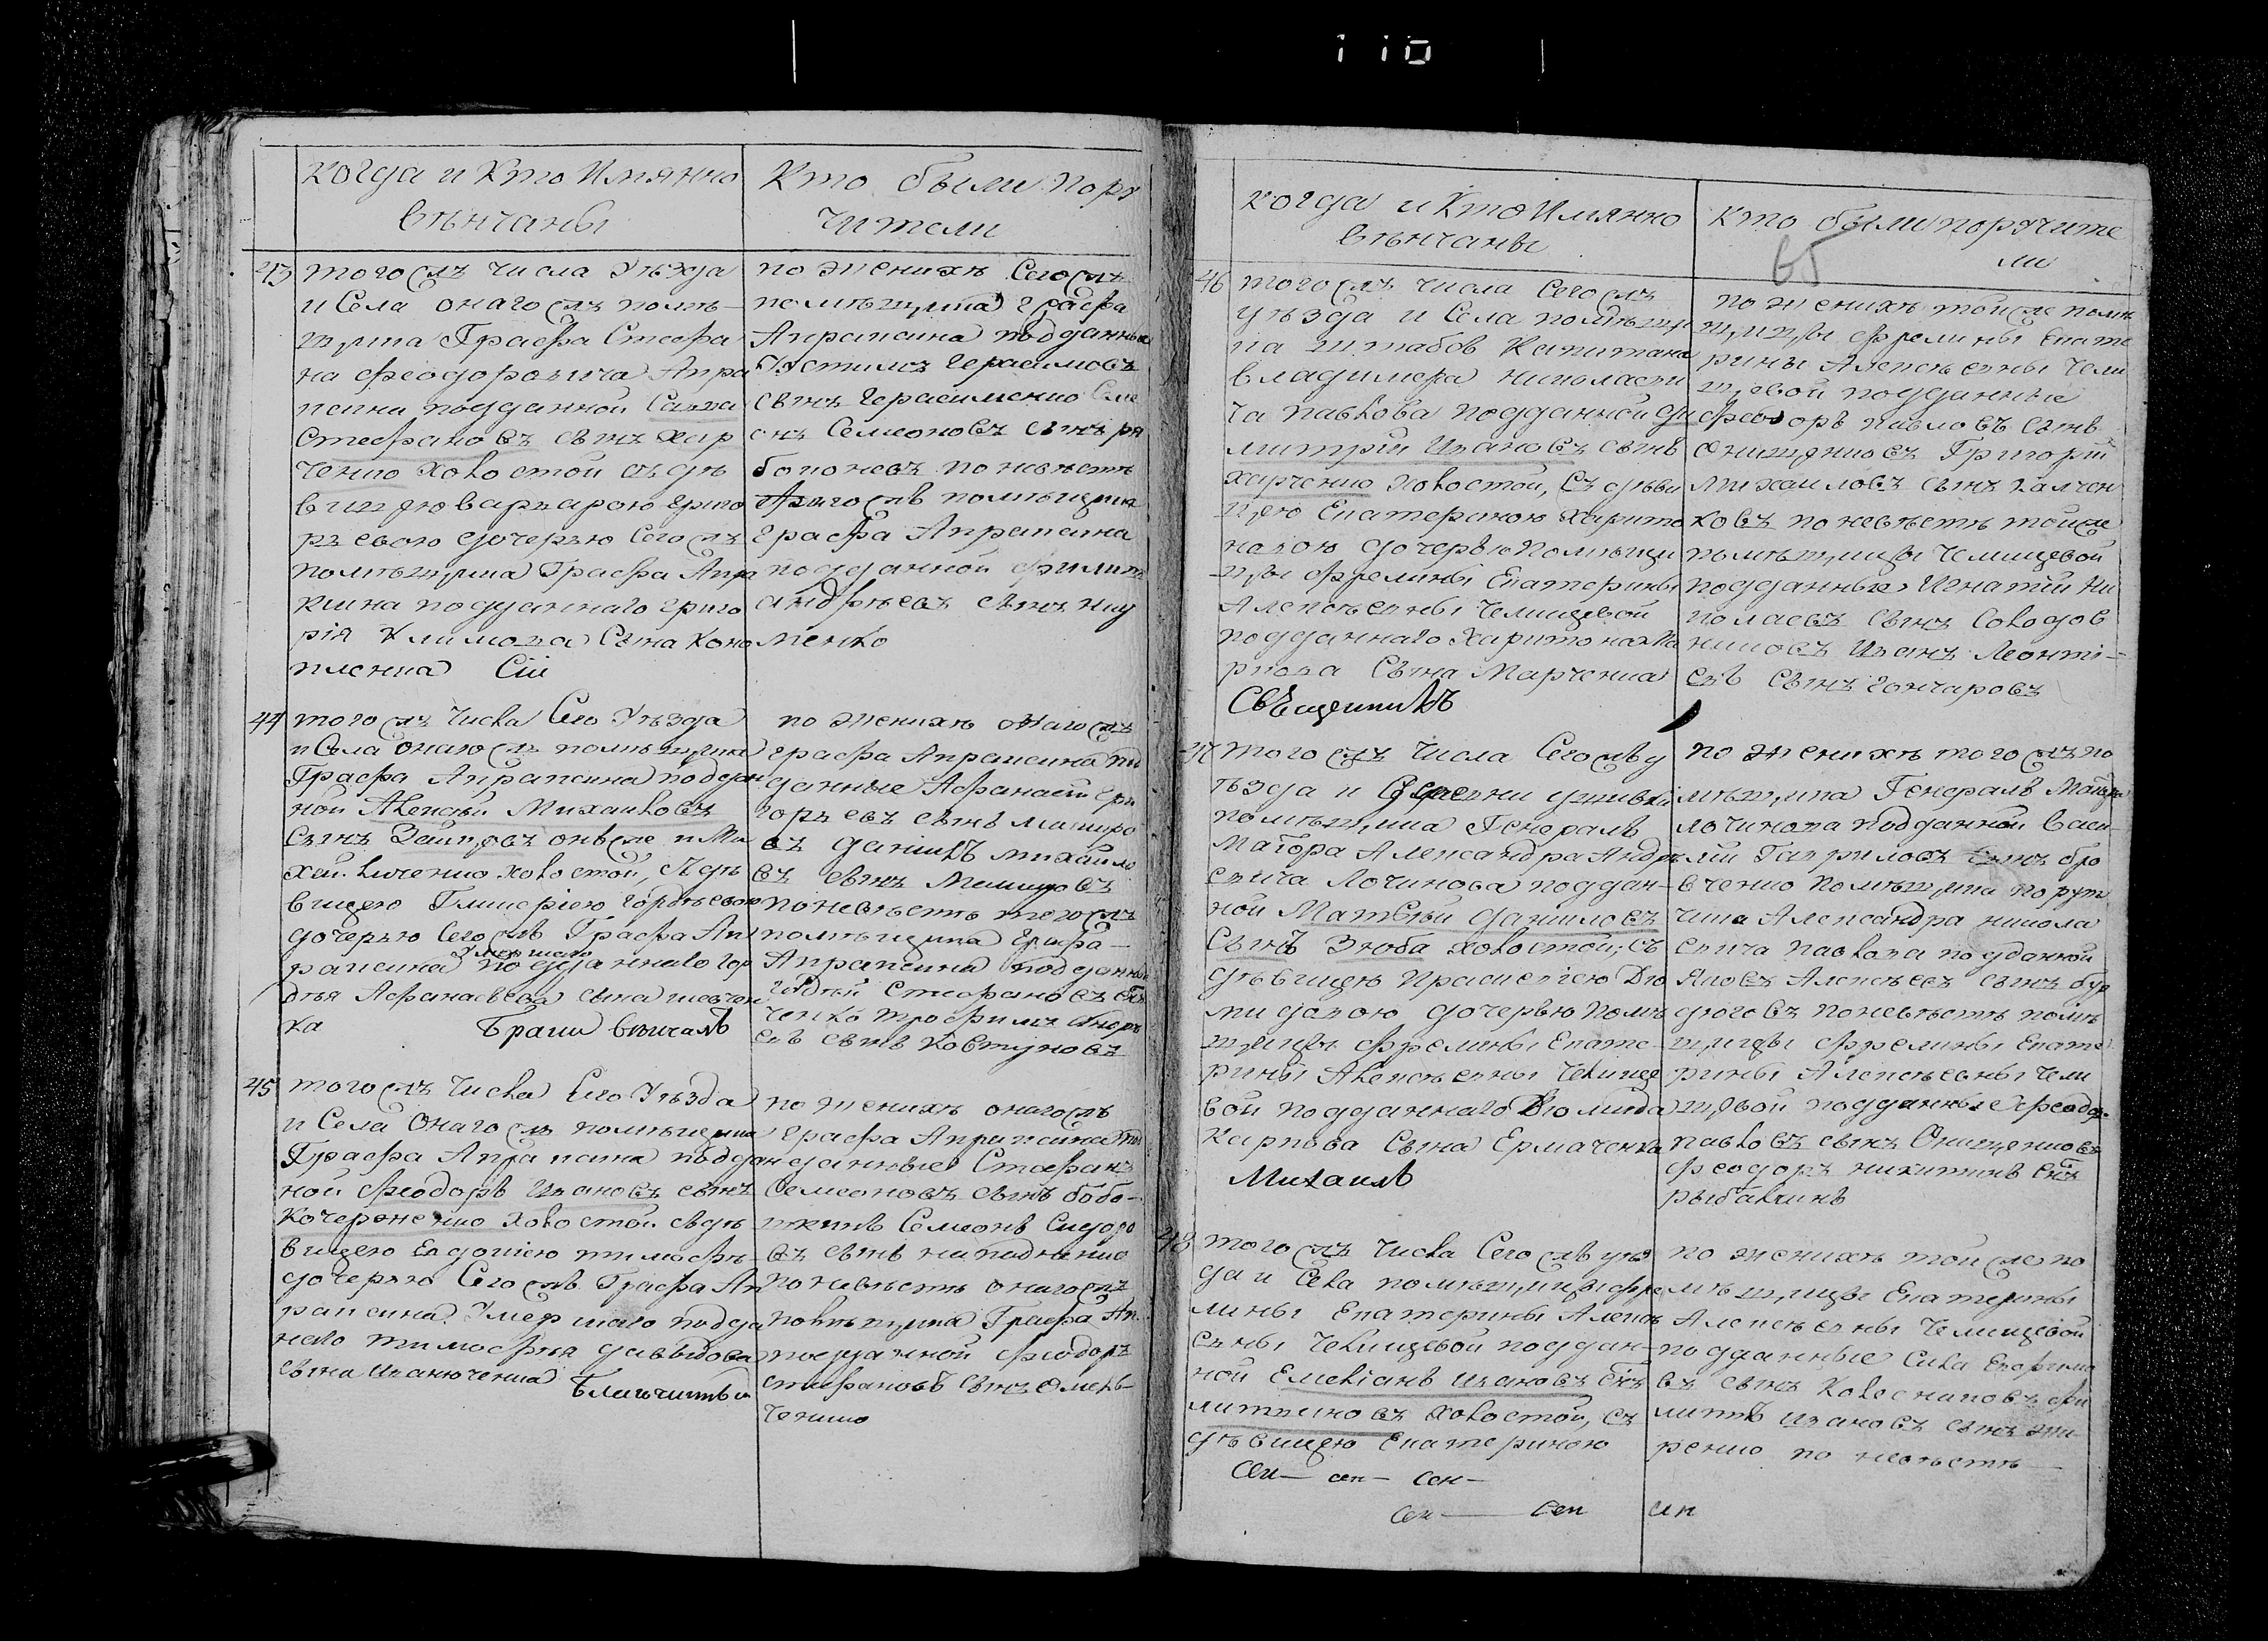 110
когда и кто Имянно
вѣнчаны
Кто были пору
чители
43
того жъ числа уѣзда
и Села онаго жъ помѣ-
щика Графа Стефа
на Феодоровича Апра
ксина подданной Савва
Стефановъ сынъ Хар
ченко холостой съ дѣ
вицею варварою григо
рьевою дочерью Сего жъ
помѣщика Графа Апра
ксина подданнаго григо
рія Климова Сына Коно
пленка Сіи
по женихѣ Сего жъ
помѣщика графа
Апраксина подданныи
Устимъ герасимовъ
сынъ Герасименко Сим
онъ Семеоновъ сынъ ря
боконевъ по невѣстѣ
того жъ помѣщика
графа Апраксина
подданной Филипъ
андрѣевъ сынъ
менко
44
того жъ числа Сего уѣзда
и Села онаго жъ помѣщика
Графа Апраксина поддан
ной Алексѣй Михайловъ
сынъ Зайцовъ онъ же и Ми
хайличенко холостой, съ дѣ
вицею Гликеріею гордѣевою
дочерью Сего жъ Графа Ап
раксина умершаго подданнаго гор
дѣя Афанасьева сына шевчен
ка Бракъ вѣнчалъ
по женихѣ онаго жъ
графа Апраксина под
данные Афанасій гри
горьевъ сынъ
въ даніилъ михайло
въ сынъ
по невѣстѣ того жъ
помѣщика графа
Апраксина подданныи
гордѣй Стефановъ сынъ
ченко трофимъ
евъ сынъ Ковтуновъ
45
того жъ числа Сего уѣзда
и Села Онаго жъ помѣщика
Графа Апраксина поддан
ной Феодоръ Ивановъ сынъ
Кочерженко холостой съ дѣ
вицею Евдокіею тимофѣ
дочерью Сего жъ Графа Ап
раксина умершаго подда
наго тимофѣя давыдова
сына иванюченка
по женихѣ онаго жъ
графа Апраксина под
данныые Стефанъ
Семеоновъ сынъ бобо-
шкинъ Семіонъ Сидоро
въ сынъ
по невѣстѣ онаго жъ
помѣщика Графа Ап
подданной Феодоръ
стефановъ сынъ Омель-
ченко
когда и Кто Имянно
вѣнчаны
Кто были поручите
ли
65
46
того жъ числа Сего жъ
уѣзда и Села помѣщи
ка штабсъ Капитана
владимера николаеви
ча павлова подданной ди
митрій Ивановъ сынъ
харченко холостой, съ дѣви
цею Екатериною харито
новою дочерью помѣщи
цы фрелины Екатерины
Алексѣевны Челищевой
подданнаго харитона Ма
ркова Сына Марченка
Священникъ
по женихѣ той же помѣ
щицы фрелины Екате
рины Алексѣевны Чели
щевой подданные
Феодоръ павловъ сынъ
Онищенковъ Григорій
михаиловъ сынъ палчен
ковъ по невѣстѣ той же
помѣщицы Челищевой
подданные Игнатій Ни
колаевъ сынъ Солодов
никовъ Иванъ Леонті-
евъ сынъ гончаровъ
47
того жъ числа Сего жъ у
ѣзда и деревни
помѣщика Генералъ
Маіора Александра Андрѣ
евича Лочинова поддан-
ной Матвѣй даниловъ
сынъ Зюба холостой, съ
дѣвицею Праскевіею Дю
мидовою дочерью помѣ
щицы фрелины Екате-
рины Алексѣевны Челище
вой подданнаго Дюмида
Карпова Сына Ермаченка
Михаилъ
по женихѣ того жъ по
мѣщика Генералъ Маіора
лочинова подданной васи-
лій Гавриловъ сынъ бро
вченко помѣщика порут
чика Александра никола
евича павлова подданной
Яковъ Алексѣевъ сынъ бур
дюговъ по невѣстѣ помѣ
щицы фрелины Екате
рины Алексѣевны Чели
щевой подданные Феодоръ
павловъ сынъ Онищенковъ
феодоръ никитинъ снъ
рыбалкинъ
48
того жъ числа Сего жъ уѣз
да и Села помѣщицы фре
лины Екатерины Алексѣ
евны Челищевой поддан-
ной Емеліанъ ивановъ снъ
литвиновъ холостой, съ
дѣвицею Екатериною
по женихѣ той же по
мѣщицы Екатерины
Алексѣевны Челищевой
подданные Сила Ефимо
въ сынъ Колесниковъ фи
липъ ивановъ сынъ
ренко по невѣстѣ